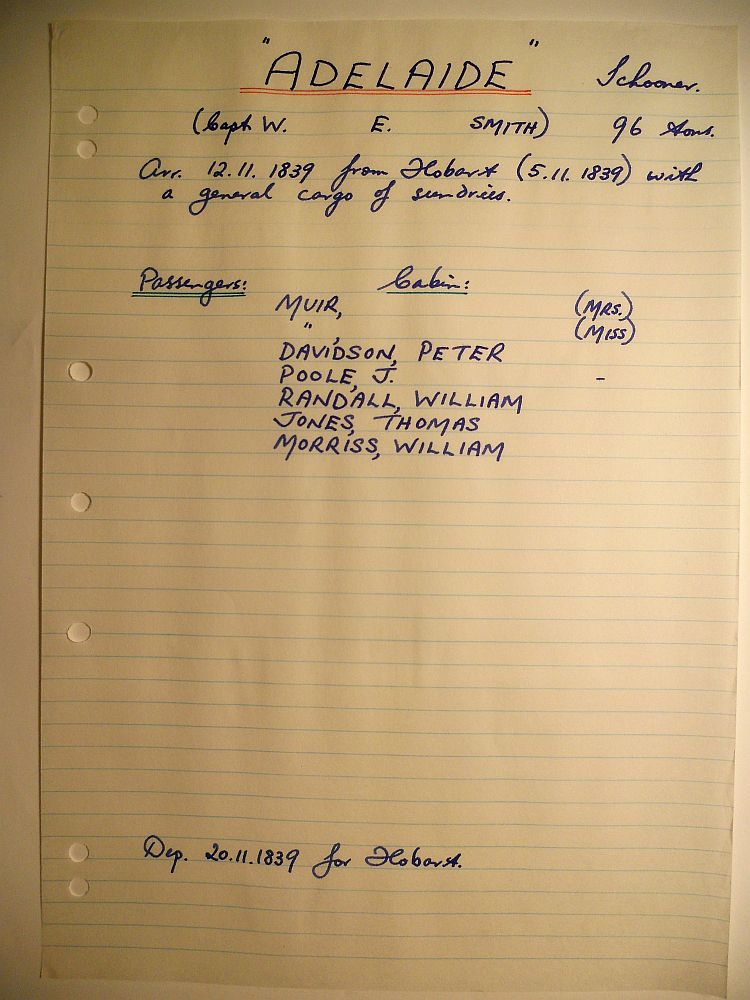 "ADELAIDE" Schooner.
(Capt W. E. SMITH) 96 tons.
Arr. 12.11.1839 from Hobart (5.11.1839) with
a general cargo of sundries.
Passengers: Cabin:
MUIR, (MRS.)
" , (MISS)
DAVIDSON, PETER
POOLE, J. -
RANDALL, WILLIAM
JONES, THOMAS
MORRISS, WILLIAM
Dep. 20.11.1839 for Hobart.